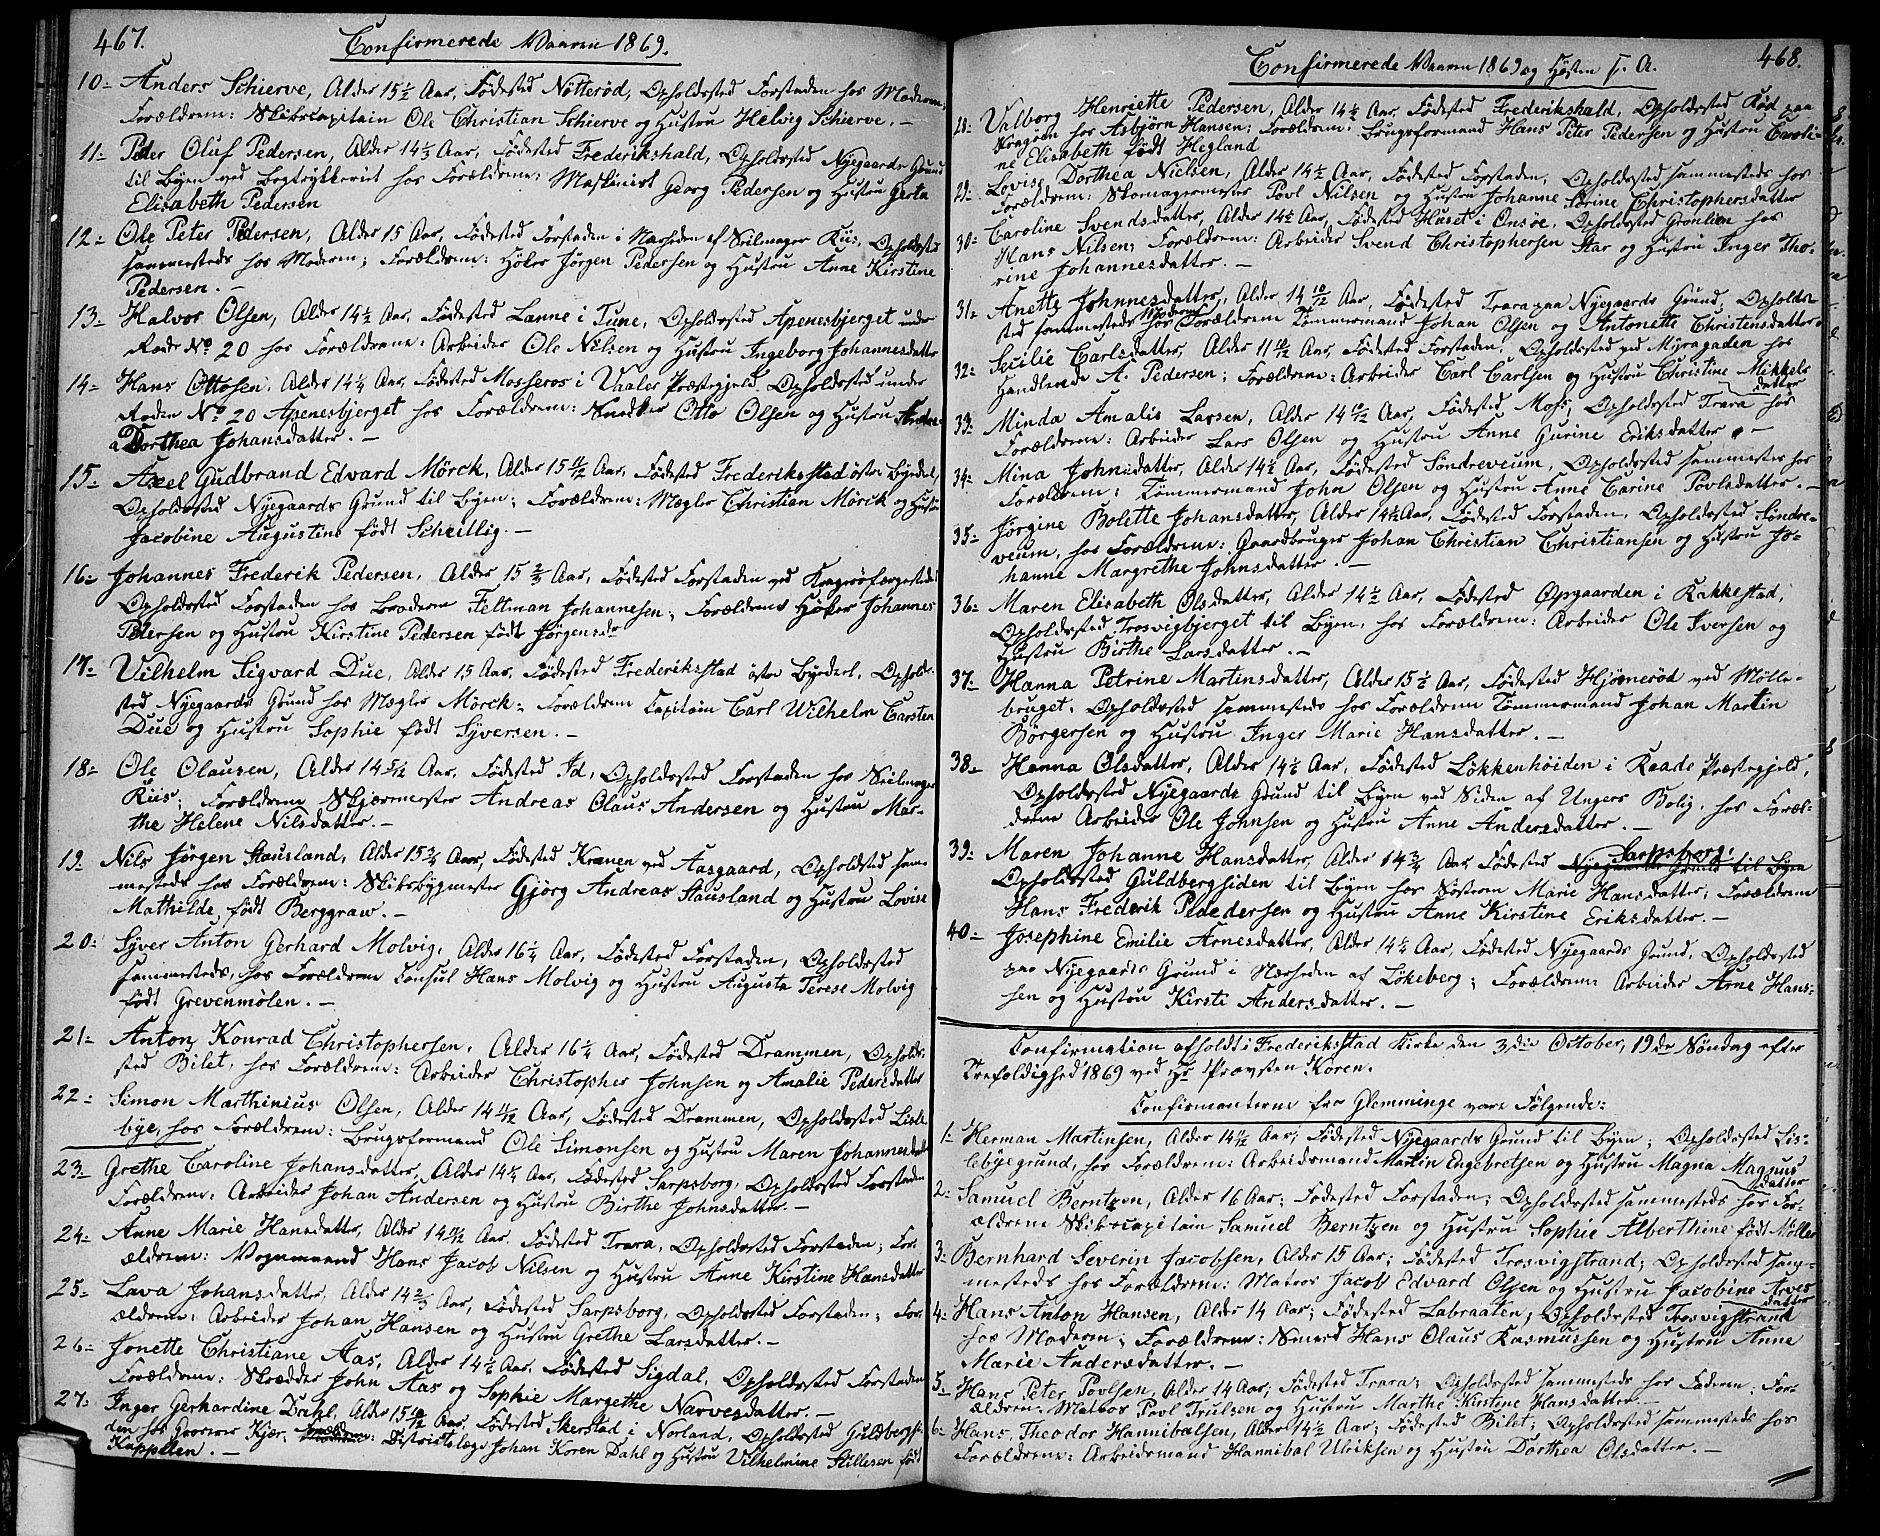 467.
Confirmerede Vaaren 1869.
10- Anders Schierve, Alder 15½ Aar, Fødested Nötterød, Opholdssted Forstaden hos Moderen;
Forældrene: Skibscapitain Ole Christian Schierve og Hustru Helvig Schierve. -
11- Peder Oluf Pedersen, Alder 14⅓ Aar, Fødested Frederikshald, Opholdssted Nyegaards Grund
til Byen ved Bogtrykkeriet hos Forældrene: Maskinist Georg Pedersen og Hustru Gerta
Elisabeth Pedersen
12- Ole Peter Pedersen, Alder 15 Aar, Fødested Forstaden i Nærheden af Seilmager Riis, Opholdssted
sammesteds hos Moderen; Forældrene: Höker Jörgen Pedersen og Hustru Anne Kirstine
Pedersen. -
13- Halvor Olsen, Alder 14½ Aar, Fødested Lanne i Tune, Opholdssted Apenesbjerget under
Rode No 20 hos Forældrene: Arbeider Ole Nilsen og Hustru Ingeborg Johannesdatter
14- Hans Ottosen, Alder 14¼ Aar, Fødested Mosseros i Vaaler Præstegjeld. Opholdssted under
Roden No 20 Apenesbjerget hos Forældrene: Snedker Otto Olsen og Hustru Andre-
a Dorthea Johansdatter. -
15- Axel Gudbrand Edvard Mörck, Alder 15 11/12 Aar, Fødested Frederiksstad östre Bydel,
Opholdssted Nyegaards Grund til Byen; Forældrene: Mægler Christian Mörck og Hustru
Jacobine Augustine født Scheitlig. -
16- Johannes Frederik Pedersen, Alder 15⅔ Aar, Fødested Forstaden ved Kragerøfærgestedet
Opholdssted Forstaden hos Broderen Feltman Johannesen; Forældrene Höker Johannes
Pedersen og Hustru Kirstine Pedersen født Jörgensdr
17- Vilhelm Sigvard Due, Alder 15 Aar, Fødested Frederiksstad östre Bydel, Opholds-
sted Nyegaards Grund hos Mægler Mörck; Forældrene Capitain Carl Wilhelm Carsten
Due og Hustru Sophie født Syversen. -
18- Ole Olausen, Alder 14 5/12 Aar, Fødested Id, Opholdssted Forstaden hos Seilmager
Riis; Forældrene Skjærmester Andreas Olaus Andersen og Hustru Mar-
the Helene Nilsdatter. -
19. Nils Jörgen Stausland, Alder 15¾ Aar, Fødested Kranen ved Aasgaard, Opholdssted sam-
mesteds hos Forældrene: Skibsbygmester Gjörg Andreas Stausland og Hustru Lovise
Mathilde, født Berggraw. -
20- Syver Anton Gerhard Molvig, Alder 16¼ Aar, Fødested Forstaden, Opholdssted
sammesteds, hos Forældrene Consul Hans Molvig og Hustru Augusta Terese Molvig
født Grevenmølen. -
21- Anton Konrad Christophersen, Alder 16¼ Aar, Fødested Drammen, Opholds-
sted Bilet, hos Forældrene: Arbeider Christopher Johnsen og Amalie Pedersdatter
22- Simon Marthinius Olsen, Alder 14 11/12 Aar, Fødested Drammen, Opholdssted Lisle-
bye, hos Forældrene: Brugsformand Ole Simonsen og Hustru Maren Johannesdatter
23- Grethe Caroline Johansdatter, Alder 14¼ Aar, Fødested Sarpsborg, Opholdssted Forstaden
Forældrene: Arbeider Johan Andersen og Hustru Birthe Johnsdatter. -
24- Anne Marie Hansdatter, Alder 14 11/12 Aar, Fødested Trara, Opholdssted Forstaden; For-
ældrene: Vognmand Hans Jacob Nilsen og Hustru Anne Kirstine Hansdatter
25- Lava Johansdatter, Alder 14⅔ Aar, Fødested Sarpsborg, Opholdssted Forstaden; For-
ældrene: Arbeider Johan Hansen og Hustru Grethe Larsdatter. -
26- Jonette Christiane Aas, Alder 14½ Aar, Fødested Sigdal, Opholdssted Forstaden
Forældrene: Skrædder John Aas og Sophie Margethe Narvesdatter. -
27- Inger Gerhardine Dahl, Alder 15 10/12 Aar, Fødested Skerstad i Norland, Opholdssted Guldbergsi-
den hos Groserer Kjær; Forældrene: Districtslæge Johan Koren Dahl og Hustru Vilhelmine Stillesen født
Kappelen. -
Confirmerede Vaaren 1869 og Høsten S. A. 468.
28- Valborg Henriette Pedersen, Alder 14½ Aar, Fødested Frederikshald, Opholdssted Rød paa
Kragöen hos Asbjörn Hansen; Forældrene: Brugsformand Hans Peter Pedersen og Hustru Caroli-
ne Elisabeth født Hegland
29- Lovise Dorthea Nielsen, Alder 14½ Aar, Fødested Forstaden, Opholdssted sammesteds hos
Forældrene: Skomagermester Povl Nilsen og Hustru Johanne Sørine Christophersdatter
30- Caroline Svendsdatter, Alder 14½ Aar, Fødested Huset i Onsöe, Opholdssted Grønlien hos
Hans Nilsen; Forældrene: Arbeider Svend Christophersen Star og Hustru Inger Tho-
rine Johannesdatter. -
31- Anette Johnnesdatter, Alder 14 10/12 Aar, Fødested Trara paa Nyegaards Grund, Opholds-
sted sammesteds hos Moderen Forældrene Tømmermand Johan Olsen og Antonette Christensdatter.
32- Secilie Carlsdatter, Alder 11 10/12 Aar, Fødested Forstaden, Opholdssted ved Myragaden hos
Handlende A. Pedersen; Forældrene: Arbeider Carl Carlsen og Hustru Christine Mikkels
datter
33- Minda Amalie Larsen, Alder 14 10/12 Aar, Fødested Moss, Opholdssted Trara hos
Forældrene: Arbeider Lars Olsen og Hustru Anne Gurine Eriksdatter. -
34- Mina Johnsdatter, Alder 14½ Aar, Fødested Söndreveum, Opholdssted sammesteds hos
Forældrene: Tømmermand John Olsen og Hustru Anne Carine Povlsdatter. -
35- Jörgine Bolette Johansdatter, Alder 14½ Aar, Fødested Forstaden, Opholdssted Söndre-
veum, hos Forældrene: Gaardbruger Johan Christian Christiansen og Hustru Jo-
hanne Margrethe Johnsdatter. -
36- Maren Elisabeth Olsdatter, Alder 14½ Aar, Fødested Opgaarden i Rakkestad,
Opholdssted Trosvigbjerget til Byen, hos Forældrene: Arbeider Ole Iversen og
Hustru Birthe Larsdatter. -
37- Hanna Petrine Martinsdatter, Alder 15½ Aar, Fødested Hjörnerød ved Mölle-
bruget, Opholdssted sammesteds hos Forældrene Tømmermand Johan Martin
Börgersen og Hustru Inger Marie Hansdatter. -
38- Hanna Olsdatter, Alder 14½ Aar, Fødested Lökkenhöiden i Raade Præstegjeld,
Opholdssted Nyegaards Grund til Byen ved Siden af Ungers Bolig, hos Foræl-
drene Arbeider Ole Johnsen og Hustru Anne Andersdatter. -
39- Maren Johanne Hansdatter, Alder 14¾ Aar, Fødested Nyegaards Grund til Byen Sarpsborg,
Opholdssted Guldbergsiden til Byen hos Søsteren Marie Hansdatter; Forældrene
Hans Frederik Pededersen og Hustru Anne Kirstine Eriksdatter. -
40- Josephine Emilie Arnesdatter, Alder 14¼ Aar, Fødested Nyegaards Grund, Opholdssted
paa Nyegaards Grund i Nærheden af Lökeberg; Forældrene Arbeider Arne Hans-
sen og Hustru Kirsti Andersdatter. -
Confirmation afholdt i Frederiksstad Kirke den 3die October, 19de Søndag efter
Trefoldighed 1869 ved Hr Provsten Koren.
Confirmanterne fra Glemminge vare Følgende:
1- Herman Martinsen, Alder 14 11/12 Aar; Fødested Nyegaards Grund til Byen; Opholdssted Lis-
lebyegrund, hos Forældrene: Arbeidsmand Martin Engebretsen og Hustru Magna Magnus
datter
2- Samuel Berntzen, Alder 16 Aar; Fødested Forstaden; Opholdssted sammesteds hos For-
ældrene Skibscapitain Samuel Berntzen og Hustru Sophie Alberthine født Møller
3- Bernhard Severin Jacobsen, Alder 15 Aar; Fødested Trosvigstrand; Opholdssted sam-
mesteds hos Forældrene: Matros Jacob Edvard Olsen og Hustru Jacobine Arves
datter
4- Hans Anton Hansen, Alder 14 Aar; Fødested Labraaten; Opholdssted Trosvigstrand
hos Moderen; Forældrene: Smed Hans Olaus Rasmussen og Hustru Anne
Marie Andersdatter. -
5- Hans Peter Povlsen, Alder 14 Aar; Fødested Trara; Opholdssted sammesteds hos Faderen; For-
ældrene: Matros Povl Trulsen og Hustru Marthe Kirstine Hansdatter. -
6- Hans Theodor Hannibalsen, Alder 14½ Aar; Fødested Bilet; Opholdssted sammesteds hos
Forældrene: Arbeidsmand Hannibal Ulriksen og Hustru Dorthea Olsdatter. -